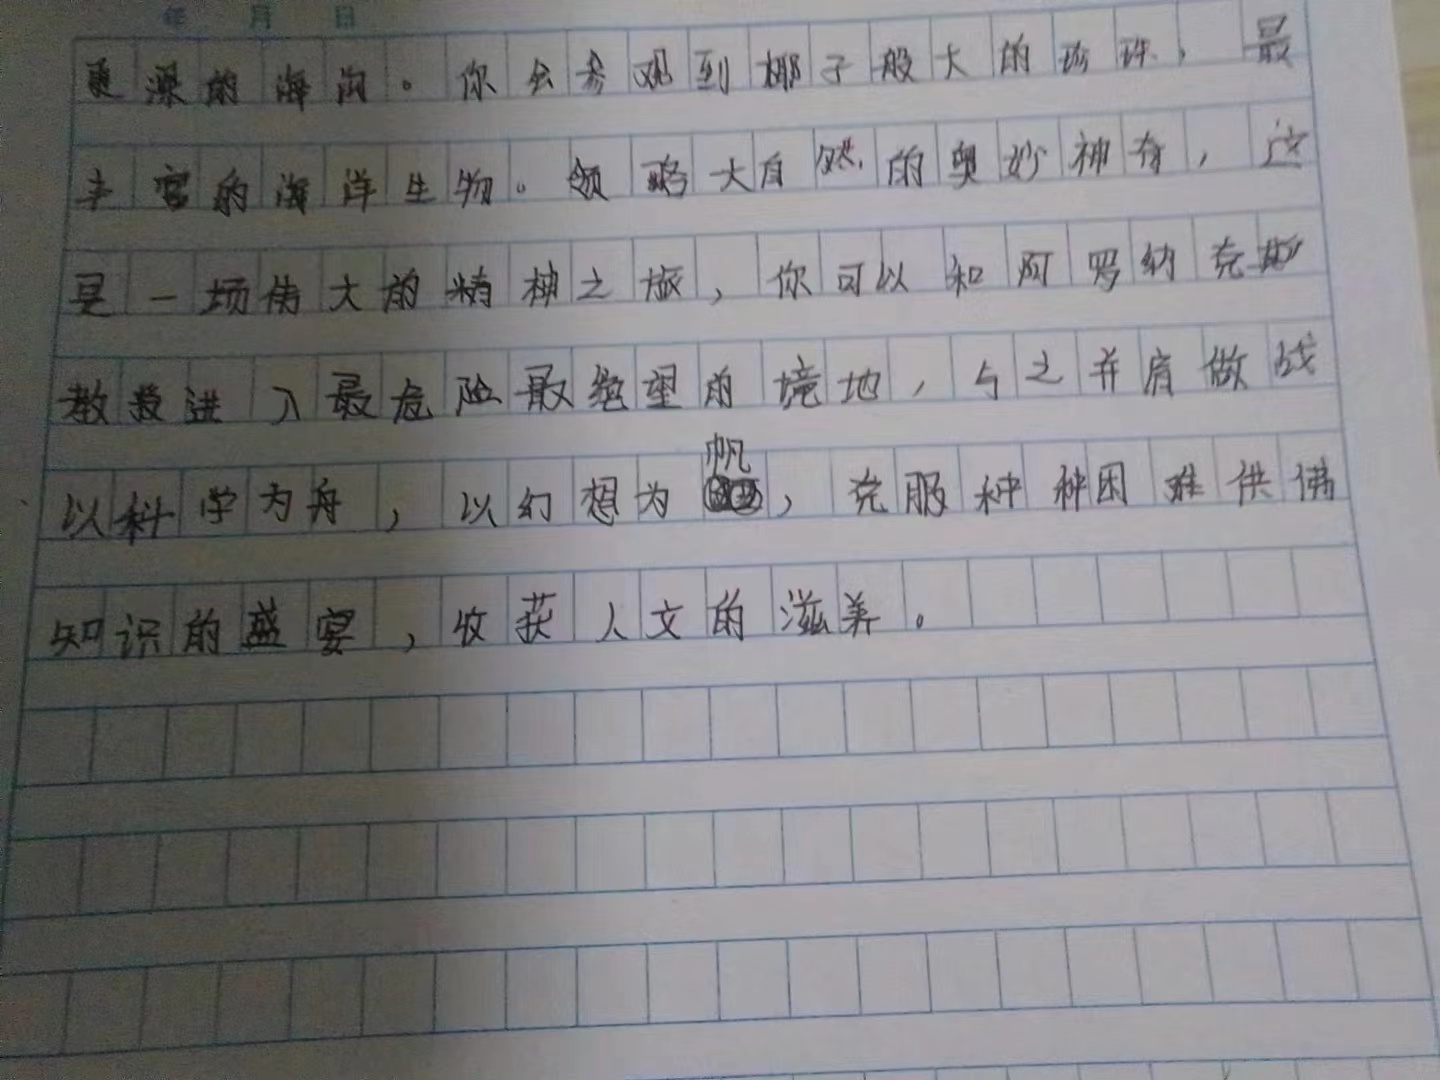 年 月 日
更深的海沟。你会参观到椰子般大的珍珠，最
丰富的海洋生物。领略大自然的奥妙神奇，这
是一场伟大的精神之旅，你可以和阿罗纳克斯
教授进入最危险最绝望的境地，与之并肩做战
以科学为舟，以幻想为帆，克服种种困难供佛
知识的盛宴，收获人文的滋养。